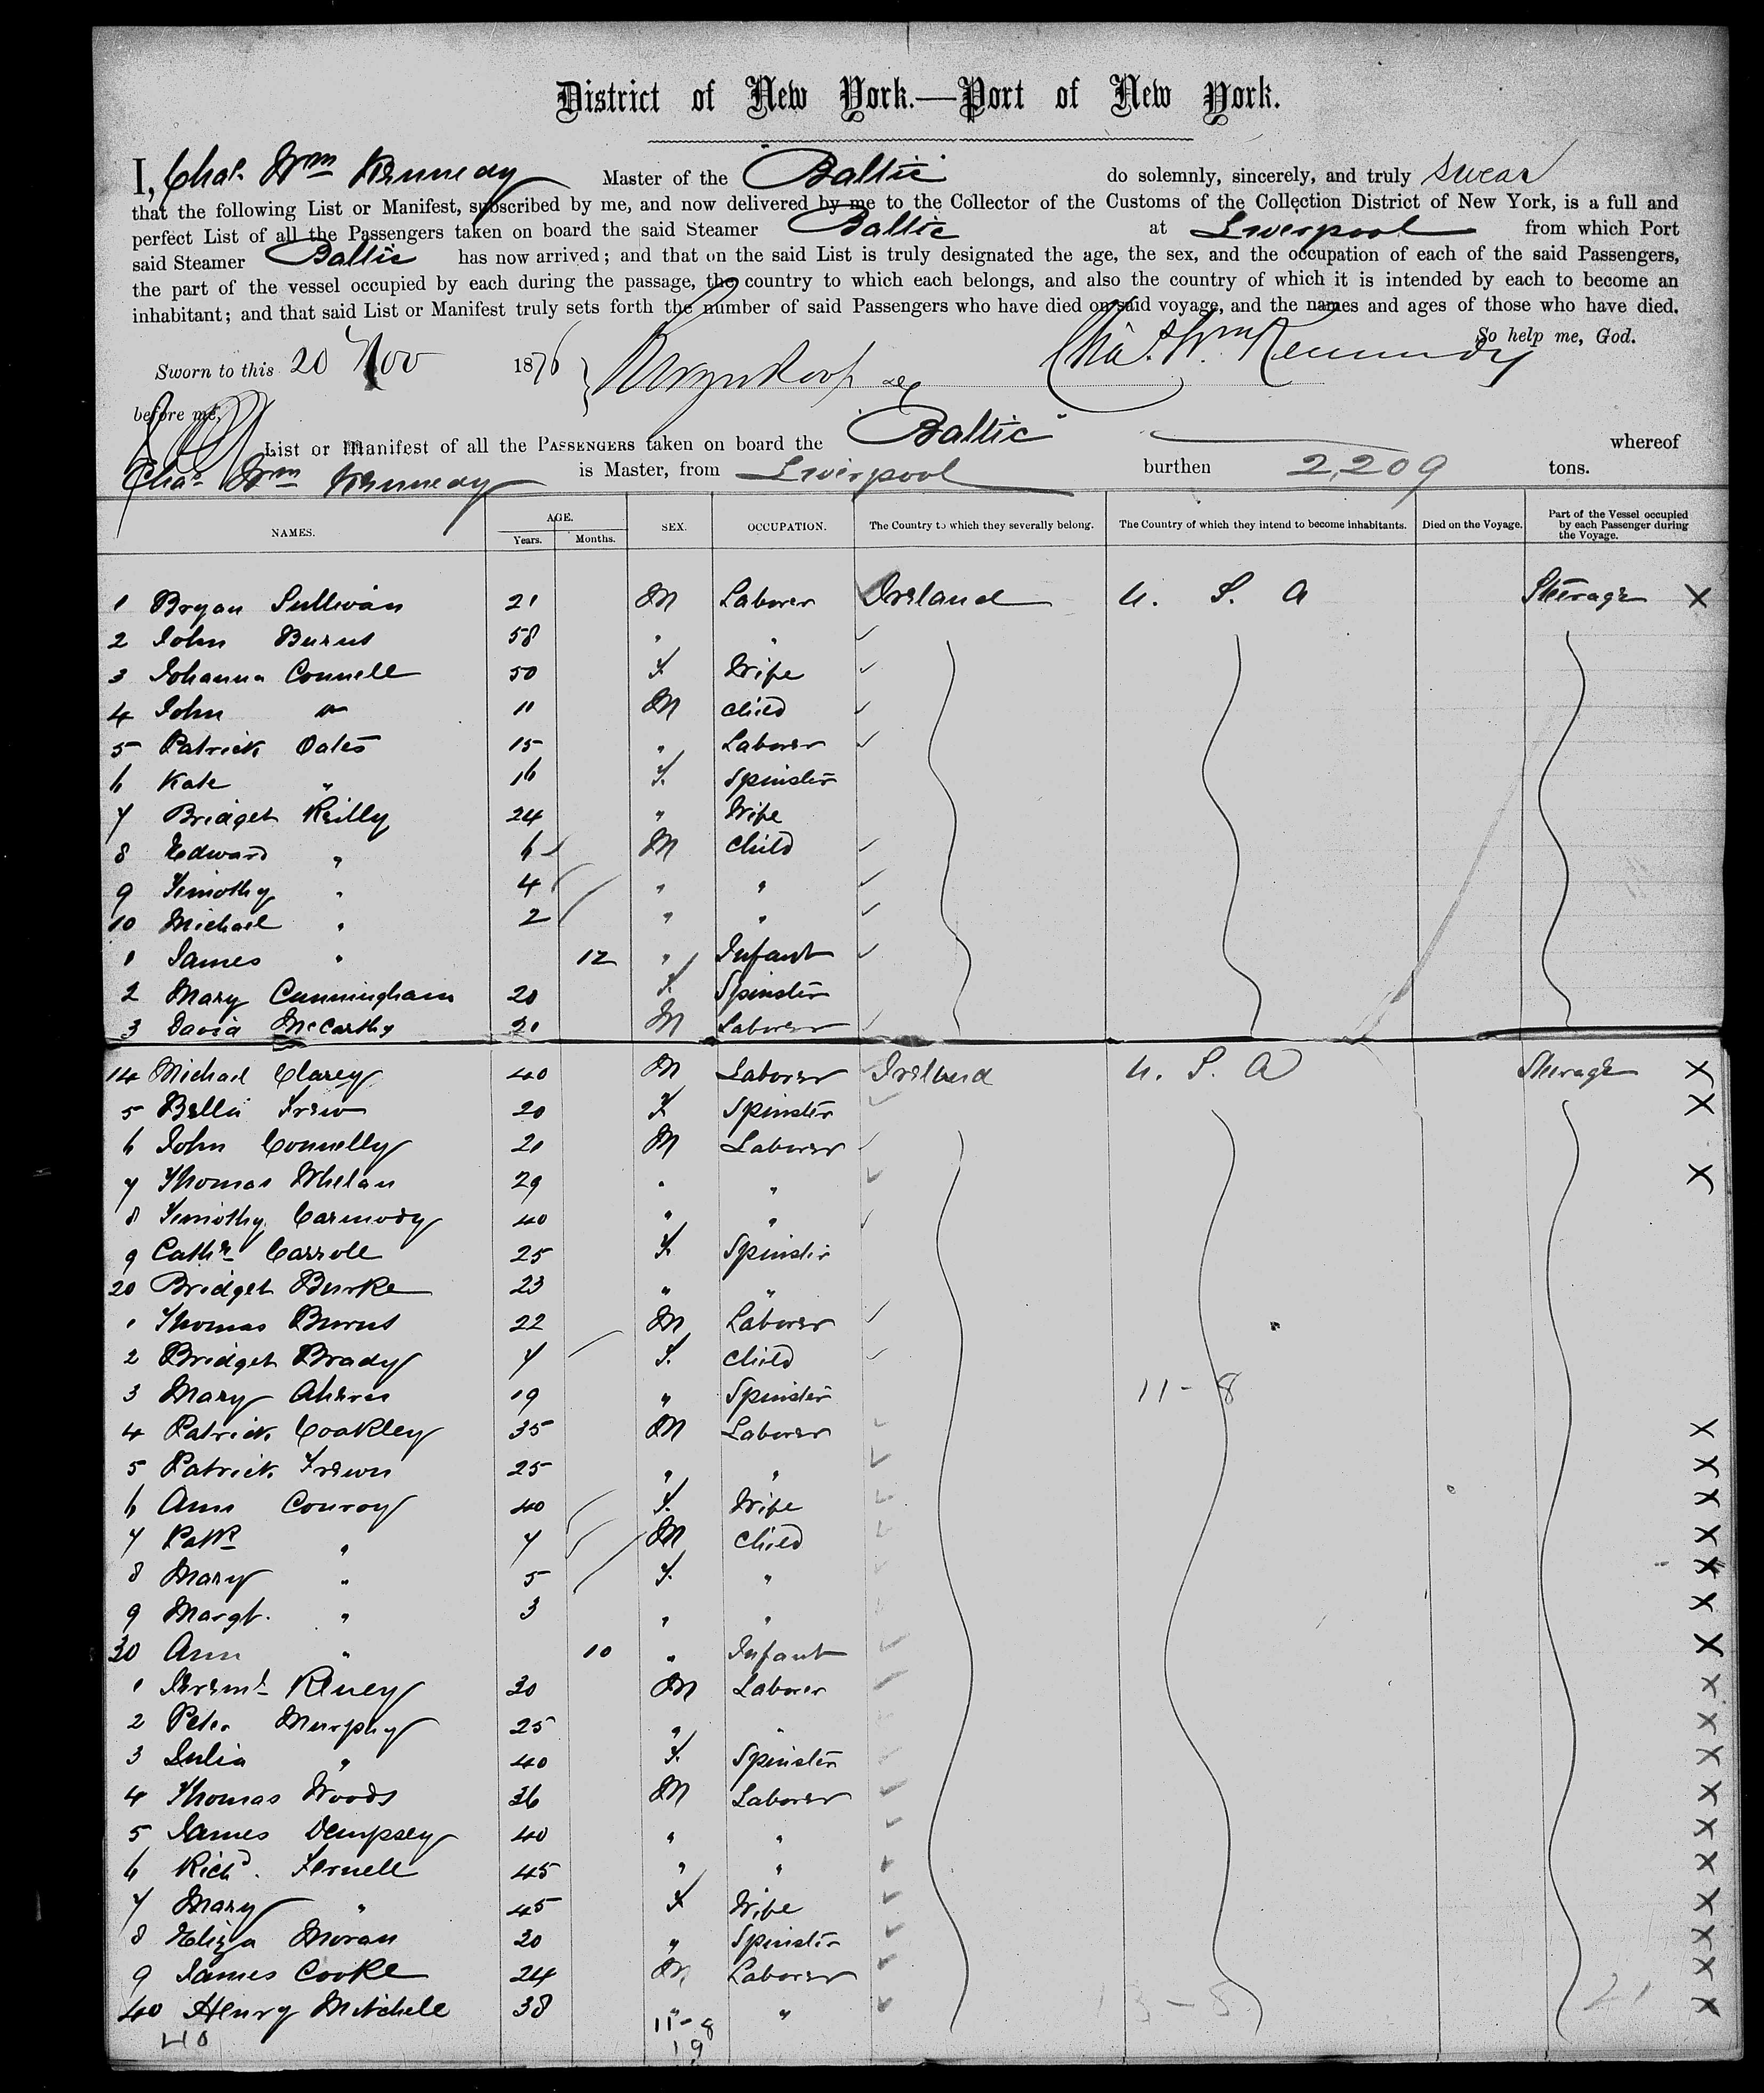 District of New York.—Port of New York.
I, Chas. Wm Kennedy Master of the "Baltic" do solemnly, sincerely, and truly swear
that the following List or Manifest, subscribed by me, and now delivered by me to the Collector of the Customs of the Collection District of New York, is a full and
perfect List of all the Passengers taken on board the said Steamer Baltic at Liverpool from which Port
said Steamer Baltic has now arrived; and that on the said List is truly designated the age, the sex, and the occupation of each of the said Passengers,
the part of the vessel occupied by each during the passage, the country to which each belongs, and also the country of which it is intended by each to become an
inhabitant; and that said List or Manifest truly sets forth the number of said Passengers who have died on said voyage, and the names and ages of those who have died.
So help me, God.
Sworn to this 20 Nov 1876 Chas. Wm Kennedy
before me,
List or Manifest of all the PASSENGERS taken on board the "Baltic" whereof
Chas. Wm Kennedy is Master, from Liverpool burthen 2,209 tons.
NAMES. AGE. Years. Months. SEX. OCCUPATION. The Country to which they severally belong. The Country of which they intend to become inhabitants. Died on the Voyage. Part of the Vessel occupied by each Passenger during the Voyage.
1 Bryan Sullivan 21 M Laborer Ireland U. S. A Steerage X
2 John Burns 58 " "
3 Johanna Connell 50 F Wife
4 John " 11 M Child
5 Patrick Oates 15 " Laborer
6 Kate " 16 F. Spinster
7 Bridget Reilly 24 " Wife
8 Edward " 6 M Child
9 Timothy " 4 " "
10 Michael " 2 " "
1 James " 12 " Infant
2 Mary Cunningham 20 F. Spinster
3 David McCarthy 21 M Laborer
14 Michael Clarey 40 M Laborer Ireland U. S. A Steerage X
5 Bella Frew 20 F Spinster X
6 John Connelly 21 M Laborer
7 Thomas Whelan 29 " " X
8 Timothy Carmody 40 " "
9 Cathe Carroll 25 F. Spinster
20 Bridget Burke 23 " "
1 Thomas Burns 22 M Laborer
2 Bridget Brady 7 F. Child
3 Mary Ahern 19 " Spinster 11-8
4 Patrick Coakley 35 M Laborer X
5 Patrick Frewn 25 " " X
6 Ann Conroy 40 F. Wife X
7 Patk " 7 M Child X
8 Mary " 5 F. " X
9 Margt. " 3 " " X
30 Ann " 10 " Infant X
1 Jeremh Riney 30 M Laborer X
2 Peter Murphy 25 " " X
3 Julia " 40 F. Spinster X
4 Thomas Woods 36 M Laborer X
5 James Dempsey 40 " " X
6 Richd. Fernell 45 " " X
7 Mary " 45 F Wife X
8 Eliza Moran 30 " Spinster X
9 James Cooke 24 M Laborer X
40 Henry Mitchell 38 " " 21 X
40 11-8
19